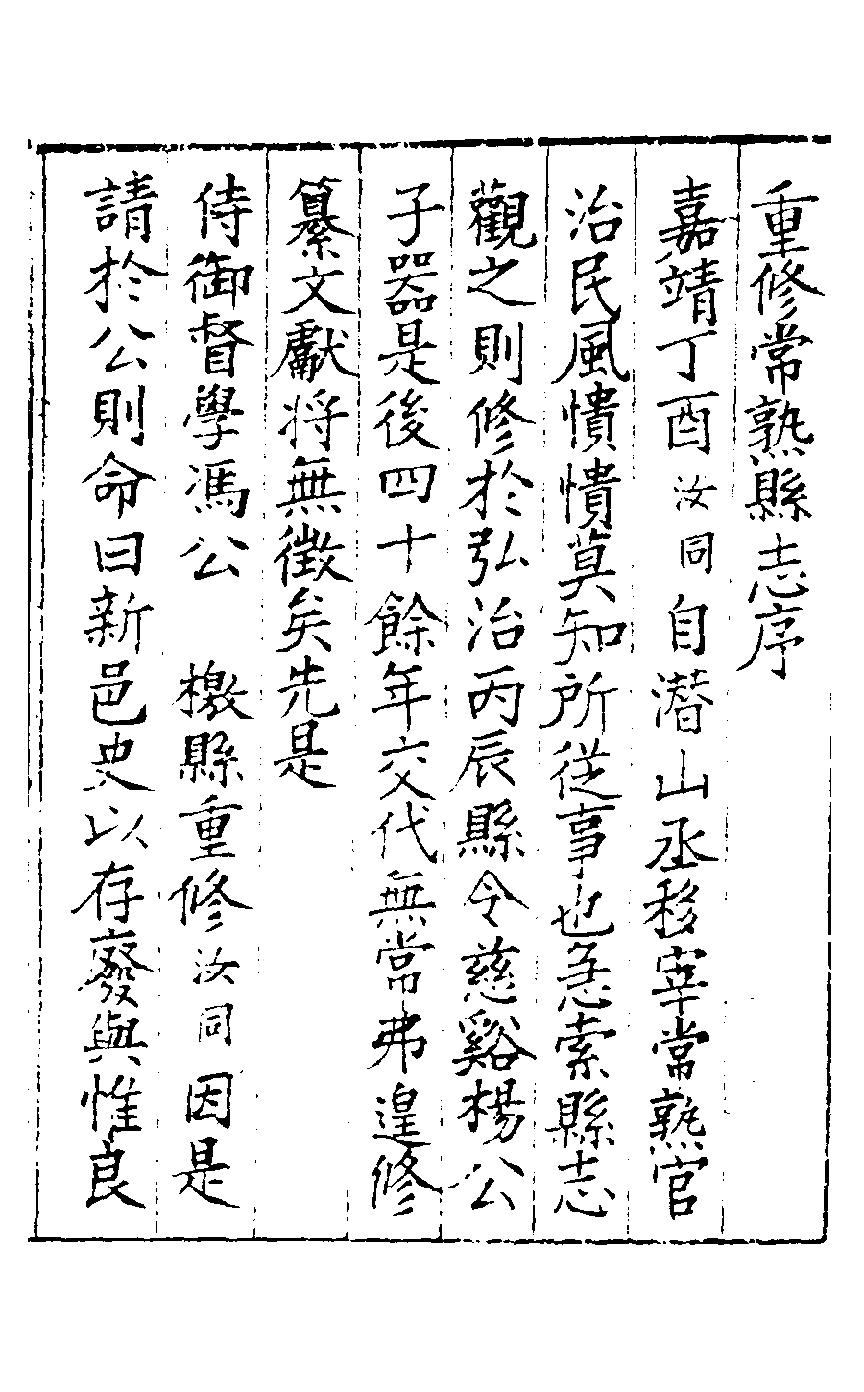 重修常熟縣志序
嘉靖丁酉汝同自潛山丞移宰常熟官
治民風憒憒莫知所從事也急索縣志
觀之則修於弘治丙辰縣令慈谿楊公
子器是後四十餘年交代無常弗遑修
纂文獻将無徵矣先是
侍御督學馮公 檄縣重修汝同因是
請於公則命曰新邑史以存廢興惟良